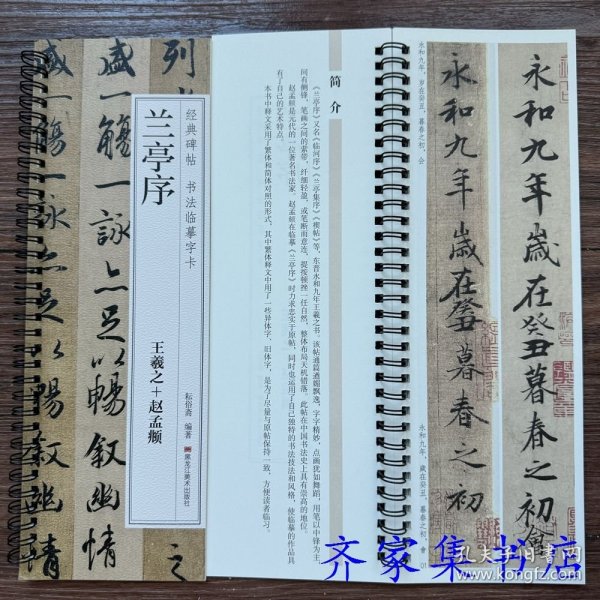 列
盛一觴一詠亦足以暢叙幽情
盛一觴一詠亦足以暢叙幽情
之
经典碑帖 书法临摹字卡
兰亭序
王羲之+赵孟頫
耘俗斋 编著
黑龙江美术出版社
简介
《兰亭序》又名《临河序》《兰亭集序》《禊帖》等,东晋永和九年王羲之书。该帖通篇遒媚飘逸,字字精妙,点画犹如舞蹈,用笔以中锋为主,
间有侧锋,笔画之间的萦带,纤细轻盈,或笔断而意连,提按顿挫一任自然,整体布局天机错落。此帖在中国书法史上具有崇高的地位。
赵孟頫是元代的一位著名书法家。赵孟頫在临摹《兰亭序》时力求忠实于原帖,同时也运用了自己独特的书法技法和风格,使临摹的作品具
有了自己的艺术特点。
本书中释文采用了繁体和简体对照的形式,其中繁体释文中用了一些异体字、旧体字,是为了尽量与原帖保持一致,方便读者临习。
永和九年,岁在癸丑,暮春之初,会
永和九年,歲在癸丑,暮春之初,會
01
永和九年歲在癸丑暮春之初會
永和九年歲在癸丑暮春之初
齐家集书店
孔夫子旧书网
www.kongfz.com